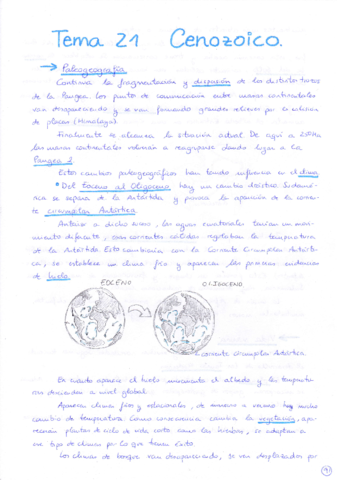 Tema 21 Cenozoico.
→ Paleogeografía
Continua la fragmentación y dispersión de los distintos trozos
de la Pangea. Los puntos de comunicación entre masas continentales
van desapareciendo y se van formando grandes relieves por colisión
de placas (Himalaya)
Finalmente se alcanza la situación actual. De aquí a
las masas continentales volverán a reagruparse dando lugar a la
Pangea 2
Estos cambios paleogeográficos han tenido influencia en el clima
* Del Eoceno al Oligoceno, hay un cambio drástico Sudamé-
rica se separa de la Antártida y provoca la aparición de la corrien-
te circumpolar Antártica.
Anterior a dicho suceso, las aguas ecuatoriales tenían un movi-
miento diferente, esas corrientes cálidas regulaban la temperatura
de la Antártida. Esto cambiaría con la Corriente Circumpolar Antárti-
ca; se establece un clima frío y aparecen las primeras evidencias
de hielo.
EOCENO OLIGOCENO
corriente Circumpolar Antártica
En cuanto aparece el hielo aumenta el albedo y las temperatu-
ras descienden a nivel global.
Aparecen climas fríos y estacionales, de invierno a verano hay mucho
cambio de temperatura. Como consecuencia cambia la vegetación, apa-
recerán plantas de ciclo de vida corto como las hierbas, se adaptan a
ese tipo de climas por lo que tienen éxito.
Los climas de bosque van desapareciendo, se van desplazados por